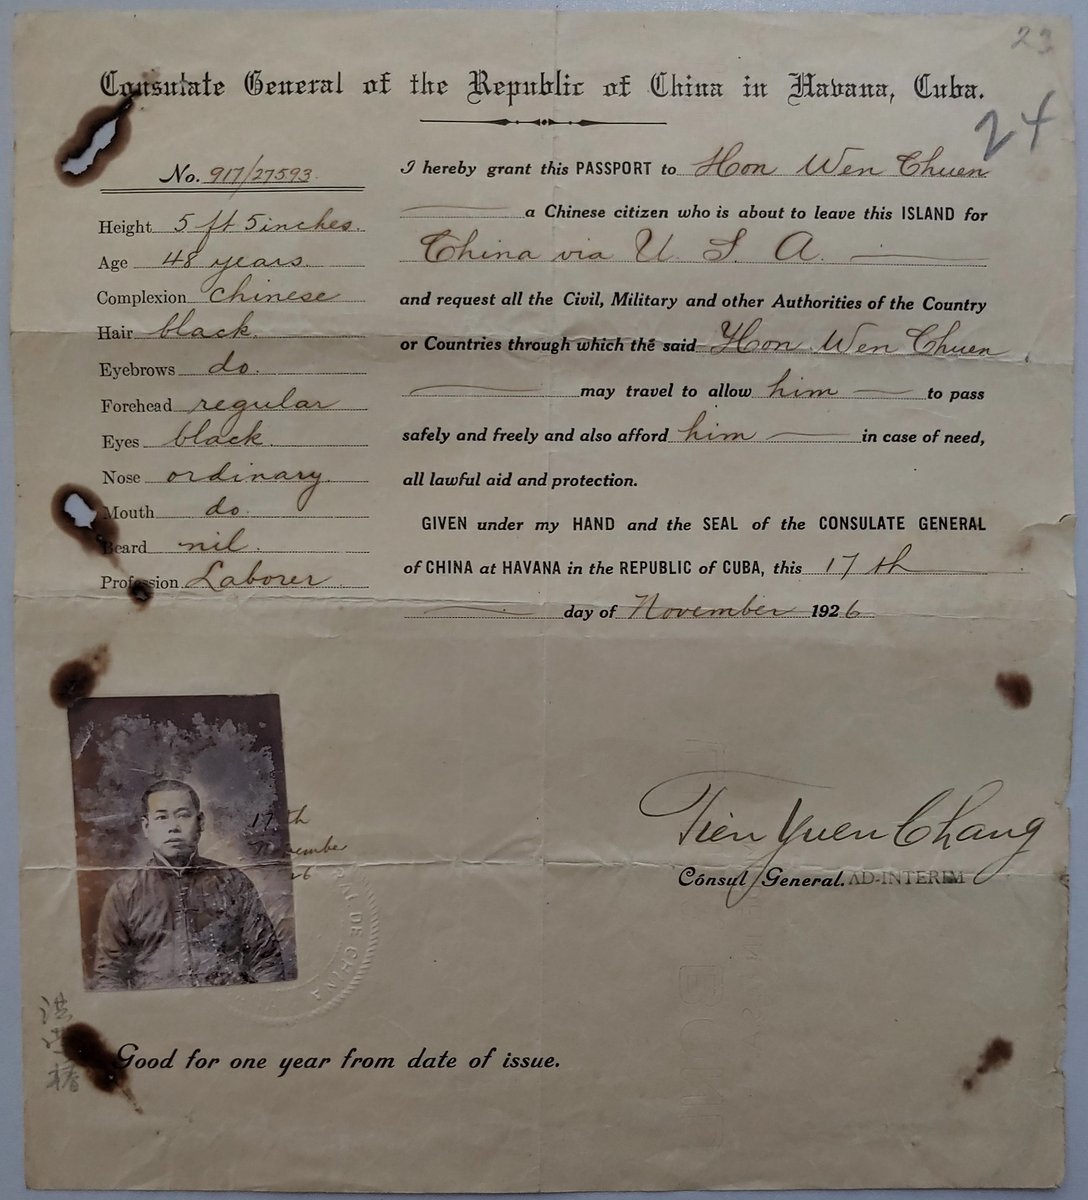 23
Consulate General of the Republic of China in Havana, Cuba.
24
No. 917/27593.
Height 5 ft 5 inches.
Age 48 years.
Complexion chinese
Hair black.
Eyebrows do.
Forehead regular
Eyes black
Nose ordinary.
Mouth do.
Beard nil.
Profession Laborer
I hereby grant this PASSPORT to Hon Wen Chuen
a Chinese citizen who is about to leave this ISLAND for
China via U. S. A.
and request all the Civil, Military and other Authorities of the Country
or Countries through which the said Hon Wen Chuen,
may travel to allow him to pass
safely and freely and also afford him in case of need,
all lawful aid and protection.
GIVEN under my HAND and the SEAL of the CONSULATE GENERAL
of CHINA at HAVANA in the REPUBLIC of CUBA, this 17th
day of November 1926
17th
November
26
RAL DE CHINA
Tien Yuen Chang
Cónsul General. AD-INTERIM
洪
椿
Good for one year from date of issue.